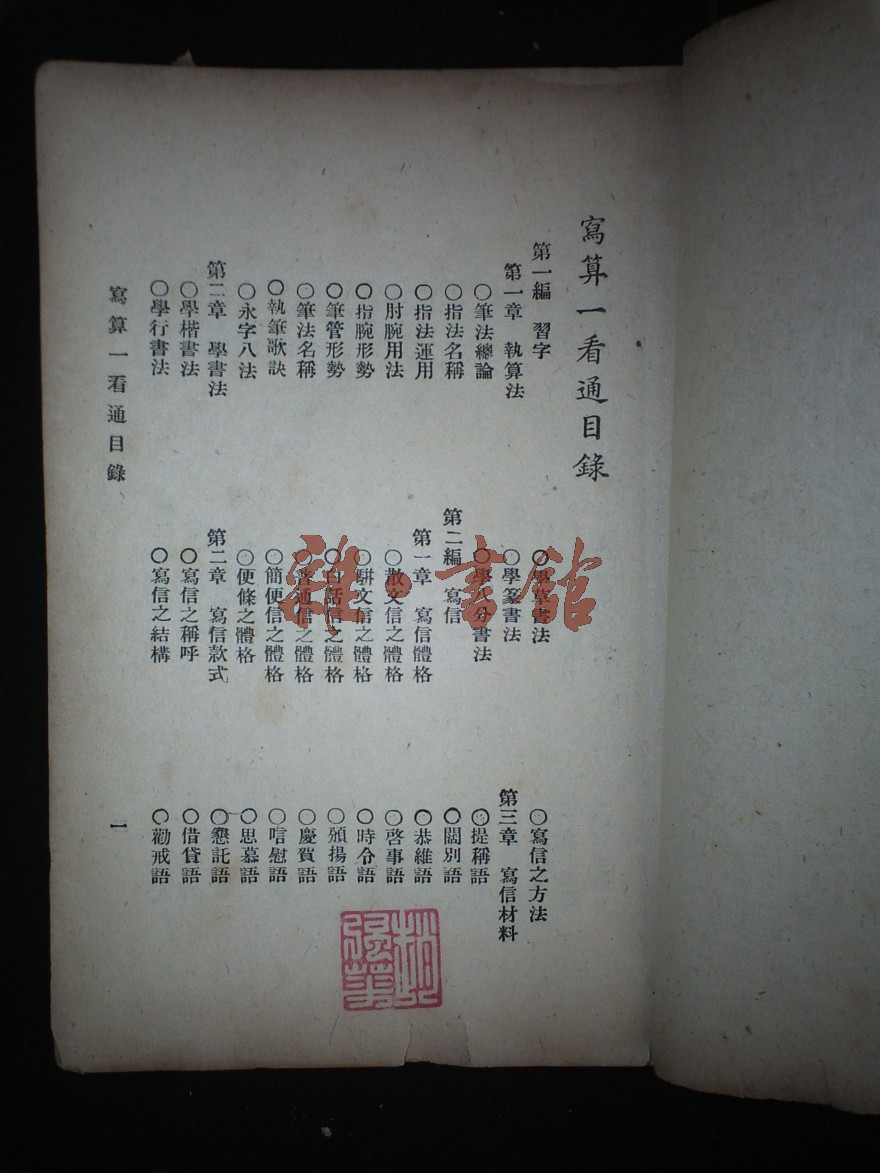 寫算一看通目錄
第一編　習字
第一章　執算法
〇筆法總論
〇指法名稱
〇指法運用
〇肘腕用法
〇指腕形勢
〇筆管形勢
〇筆法名稱
〇執筆歌訣
〇永字八法
第二章　學書法
〇學楷書法
〇學行書法
〇學草書法
〇學篆書法
〇學八分書法
第二編　寫信
第一章　寫信體格
〇散文信之體格
〇駢文信之體格
〇白話信之體格
〇普通信之體格
〇簡便信之體格
〇便條之體格
第二章　寫信款式
〇寫信之稱呼
〇寫信之結構
〇寫信之方法
第三章　寫信材料
〇提稱語
〇闊別語
〇恭維語
〇啓事語
〇時令語
〇頒揚語
〇慶賀語
〇唁慰語
〇思慕語
〇懇託語
〇借貸語
〇勸戒語
寫算一看通目錄
一
雜·書館